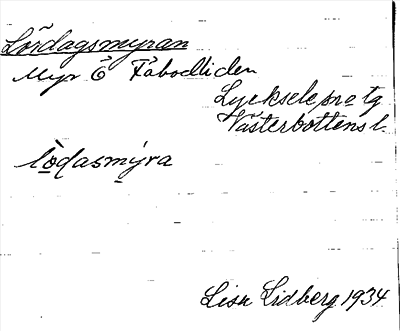 Lördagsmyran
Myr Ö Fäbodliden
Lycksele pro tg
Västerbottens l.
lòdasmýra
Lisa Lidberg 1934